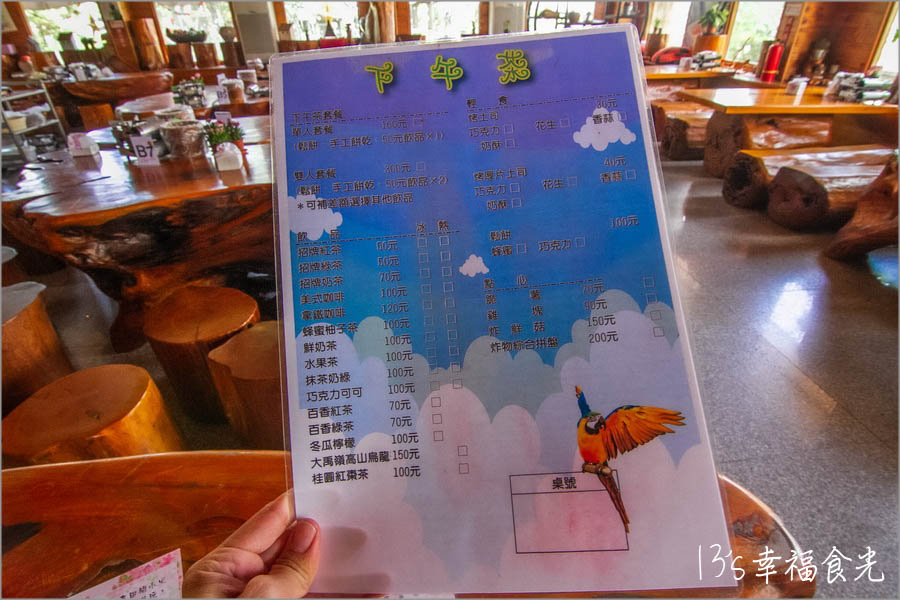 下午茶
下午茶套餐
單人套餐 160元 □
(鬆餅 手工餅乾 50元飲品×1)
雙人套餐 300元 □
(鬆餅 手工餅乾 50元飲品×2)
*可補差額選擇其他飲品
飲品 冰 熱
招牌紅茶 60元 □ □
招牌綠茶 60元 □ □
招牌奶茶 70元 □ □
美式咖啡 100元 □ □
拿鐵咖啡 120元 □ □
蜂蜜柚子茶 100元 □ □
鮮奶茶 100元 □ □
水果茶 100元 □ □
抹茶奶綠 100元 □ □
巧克力可可 100元 □ □
百香紅茶 70元 □
百香綠茶 70元 □
冬瓜檸檬 100元 □
大禹嶺高山烏龍 150元 □
桂圓紅棗茶 100元 □
輕食
烤土司 30元
巧克力□ 花生□ 香蒜□
奶酥□
烤厚片土司 40元
巧克力□ 花生□ 香蒜□
奶酥□
鬆餅 100元
蜂蜜□ 巧克力□
點心
薯 70元 □
雞塊 90元 □
炸鮮菇 150元 □
炸物綜合拼盤 200元 □
桌號
B7
13's幸福食光